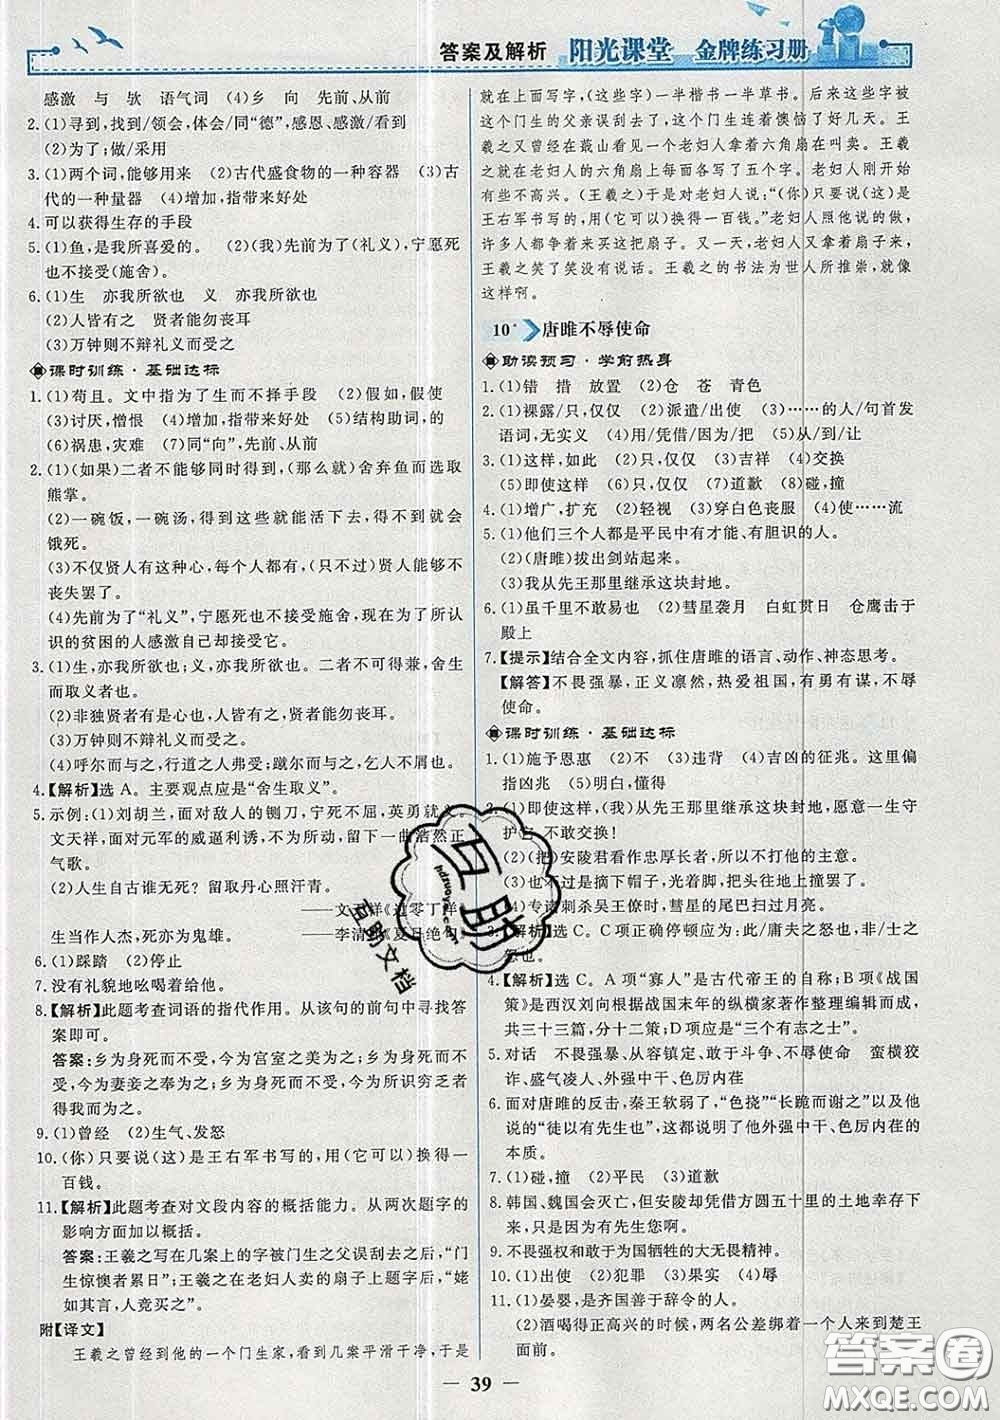 答案及解析 阳光课堂 金牌练习册
感激 与 欤 语气词 (4)乡 向 先前、从前
2.(1)寻到,找到/领会,体会/同“德”,感恩、感激/看到
(2)为了;做/采用
3.(1)两个词,能够用来 (2)古代盛食物的一种容器 (3)古
代的一种量器 (4)增加,指带来好处
4.可以获得生存的手段
5.(1)鱼,是我所喜爱的。 (2)(我)先前为了(礼义),宁愿死
也不接受(施舍)。
6.(1)生 亦我所欲也 义 亦我所欲也
(2)人皆有之 贤者能勿丧耳
(3)万钟则不辩礼义而受之
课时训练·基础达标
1.(1)苟且。文中指为了生而不择手段 (2)假如,假使
(3)讨厌,憎恨 (4)增加,指带来好处 (5)结构助词,的
(6)祸患,灾难 (7)同“向”,先前、从前
2.(1)(如果)二者不能够同时得到,(那么就)舍弃鱼而选取
熊掌。
(2)一碗饭,一碗汤,得到这些就能活下去,得不到就会
饿死。
(3)不仅贤人有这种本性,每个人都有,只不过贤人能够不
丧失罢了。
(4)先前为了“礼义”,宁愿死也不接受施舍,现在为了所认
识的贫困的人感激自己却接受它。
3.(1)生,亦我所欲也;义,亦我所欲也。二者不可得兼,舍生
而取义者也。
(2)非独贤者有是心也,人皆有之,贤者能勿丧耳。
(3)万钟则不辩礼义而受之。
(4)呼尔而与之,行道之人弗受;蹴尔而与之,乞人不屑也。
4.【解析】选 A。主要观点应是“舍生取义”。
5.示例:(1)刘胡兰,面对敌人的铡刀,宁死不屈,英勇就义。
文天祥,面对元军的威逼利诱,不为所动,留下一曲浩然正
气歌。
(2)人生自古谁无死?留取丹心照汗青。
——文天祥《过零丁洋》
生当作人杰,死亦为鬼雄。 ——李清照《夏日绝句》
6.(1)踩踏 (2)停止
7.没有礼貌地吆喝着给他。
8.【解析】此题考查词语的指代作用。从该句的前句中寻找答
案即可。
答案:乡为身死而不受,今为宫室之美为之;乡为身死而不
受,今为妻妾之奉为之;乡为身死而不受,今为所识穷乏者
得我而为之。
9.(1)曾经 (2)生气、发怒
10.(你)只要说(这)是王右军书写的,用(它可以)换得一
百钱。
11.【解析】此题考查对文段内容的概括能力。从两次题字的
影响方面加以概括。
答案:王羲之写在几案上的字被门生之父误刮去后,“门
生惊懊者累日”;王羲之在老妇人卖的扇子上题字后,“姥
如其言,人竞买之”。
附【译文】
王羲之曾经到他的一个门生家,看到几案平滑干净,于是
就在上面写字,(这些字)一半楷书一半草书。后来这些字被
这个门生的父亲误刮去了,这个门生连着懊恼了好几天。王
羲之又曾经在蕺山看见一个老妇人拿着六角扇在叫卖。王羲
之就在老妇人的六角扇上每面各写了五个字。老妇人开始
有些不高兴。(王羲之)于是对老妇人说:“(你)只要说(这)是
王右军书写的,用(它可以)换得一百钱。”老妇人照他说的做,
许多人都争着来买这把扇子。又一天,老妇人又拿着扇子来,
王羲之笑了笑没有说话。王羲之的书法为世人所推崇,就像
这样啊。
10* 唐雎不辱使命
助读预习·学前热身
1.(1)错 措 放置 (2)仓 苍 青色
2.(1)裸露/只,仅仅 (2)派遣/出使 (3)……的人/句首发
语词,无实义 (4)用/凭借/因为/把 (5)从/到/让
3.(1)这样,如此 (2)只,仅仅 (3)吉祥 (4)交换
(5)即使这样 (6)只,仅仅 (7)道歉 (8)碰,撞
4.(1)增广,扩充 (2)轻视 (3)穿白色丧服 (4)……流
5.(1)他们三个人都是平民中有才有、有胆识的人。
(2)(唐雎)拔出剑站起来。
(3)我从先王那里继承这块封地。
6.(1)虽千里不敢易也 (2)彗星袭月 白虹贯日 仓鹰击于
殿上
7.【提示】结合全文内容,抓住唐雎的语言、动作、神态思考。
【解答】不畏强暴,正义凛然,热爱祖国,有勇有谋,不辱
使命。
课时训练·基础达标
1.(1)施予恩惠 (2)不 (3)违背 (4)吉凶的征兆。这里偏
指凶兆 (5)明白,懂得
2.(1)即使这样,(我)从先王那里继承这块封地,愿意一生守
护它,不敢交换!
(2)(把)安陵君看作忠厚长者,所以不打他的主意。
(3)也不过是摘下帽子,光着脚,把头往地上撞罢了。
(4)专诸刺杀吴王僚时,彗星的尾巴扫过月亮。
3.【解析】选 C。C 项正确停顿应为:此/庸夫之怒也,非/士之
怒也。
4.【解析】选 C。A 项“寡人”是古代帝王的自称;B 项《战国
策》是西汉刘向根据战国末年的纵横家著作整理编辑而成,
共三十三篇,分十二策;D 项应是“三个有志之士”。
5.对话 不畏强暴、从容镇定、敢于斗争、不辱使命 蛮横狡
诈、盛气凌人、外强中干、色厉内荏
6.面对唐雎的反击,秦王软弱了,“色挠”“长跪而谢之”以及他
说的“徒以有先生也”,更表明了他外强中干、色厉内荏的
本质。
7.(1)碰,撞 (2)平民 (3)道歉
8.韩国、魏国会灭亡,但安陵却凭借方圆五十里的土地幸存下
来,只因为有先生您啊。
9.不畏强权和敢于为国牺牲的大无畏精神。
10.(1)出使 (2)犯罪 (3)果实 (4)辱
11.(1)晏婴,是齐国善于辞令的人。
(2)酒喝得正高兴的时候,两名公差绑着一个人来到楚王
面前。
互助
互助文档
hdzuoye.com
答案圈
MXQE.COM
— 39 —